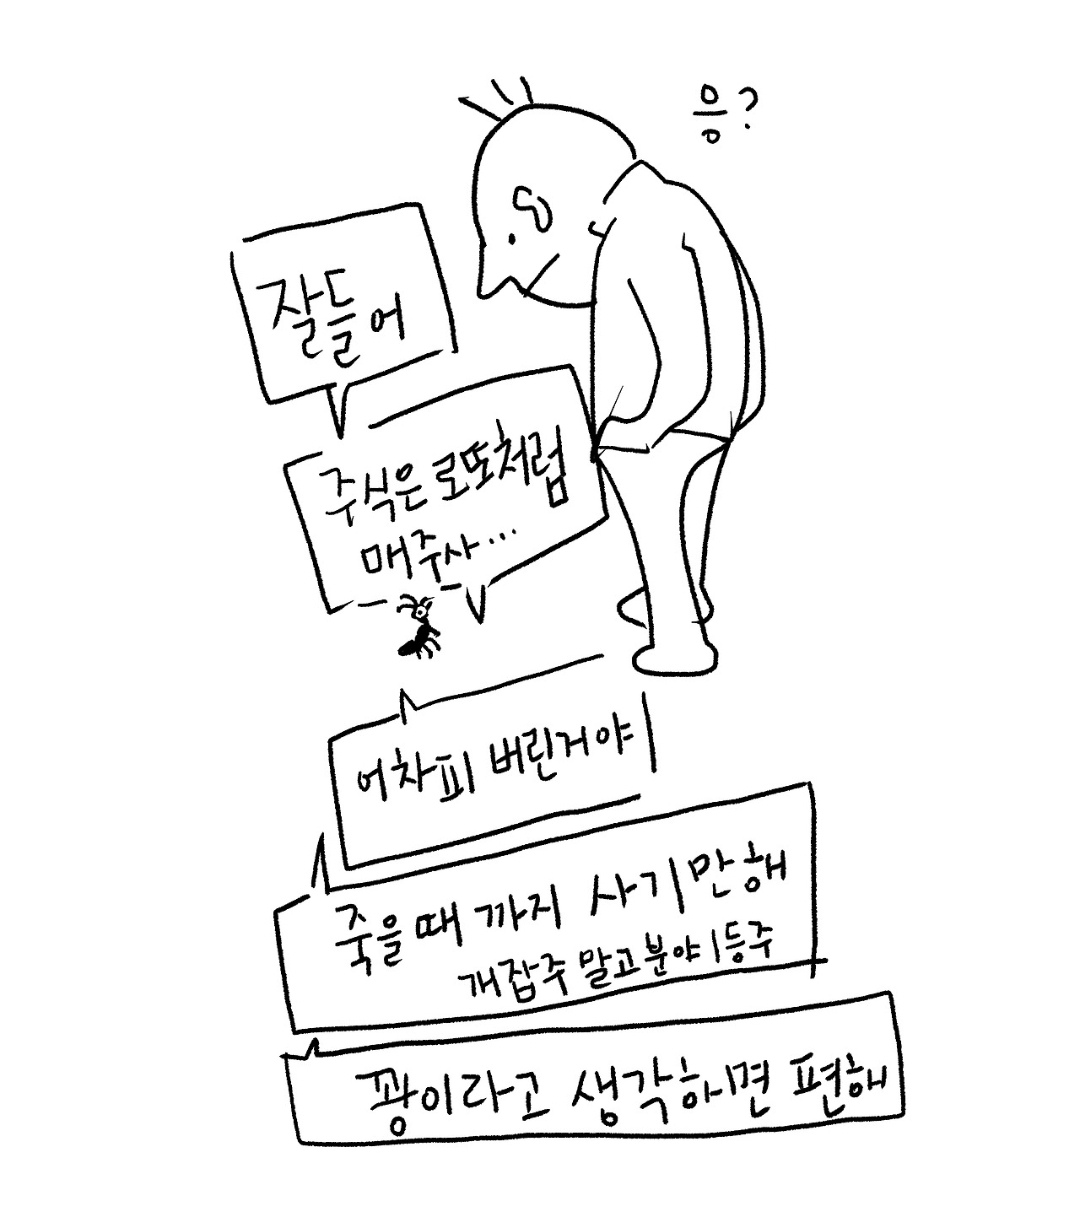 응?
잘들어
주식은 로또처럼
매주사...
어차피 버린거야
죽을때 까지 사기만해
개잡주 말고 분야 1등주
꽝이라고 생각하면 편해